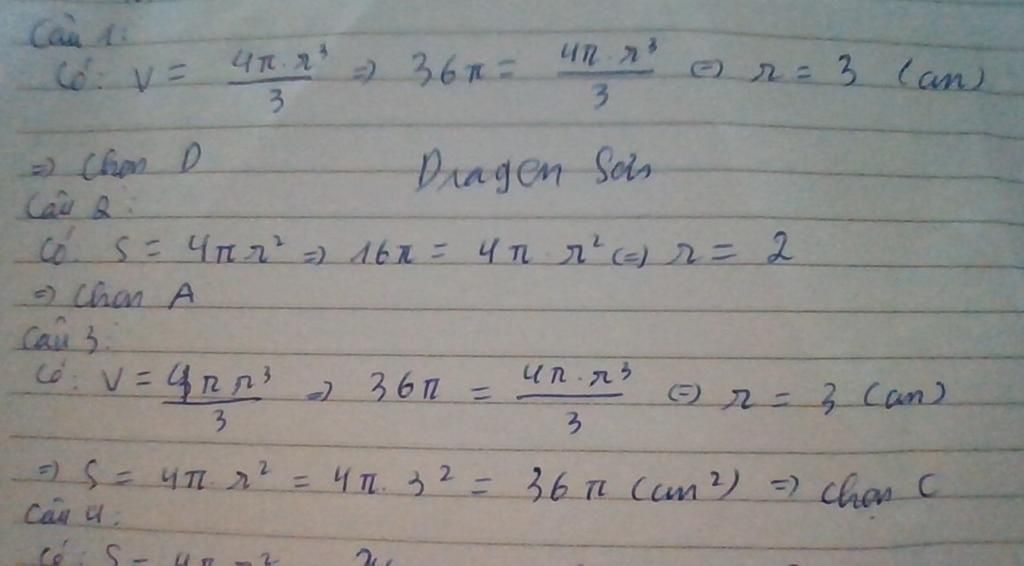 Câu 1:
Có: V = 4π.r³/3 => 36π = 4π.r³/3 <=> r = 3 (cm)
=> Chọn D Dragon Sois
Câu 2:
Có: S = 4πr² => 16π = 4π.r² <=> r = 2
=> Chọn A
Câu 3:
Có: V = 4πr³/3 => 36π = 4π.r³/3 <=> r = 3 (cm)
=> S = 4π.r² = 4π.3² = 36π (cm²) => chọn C
Câu 4:
Có: S = 4πr²